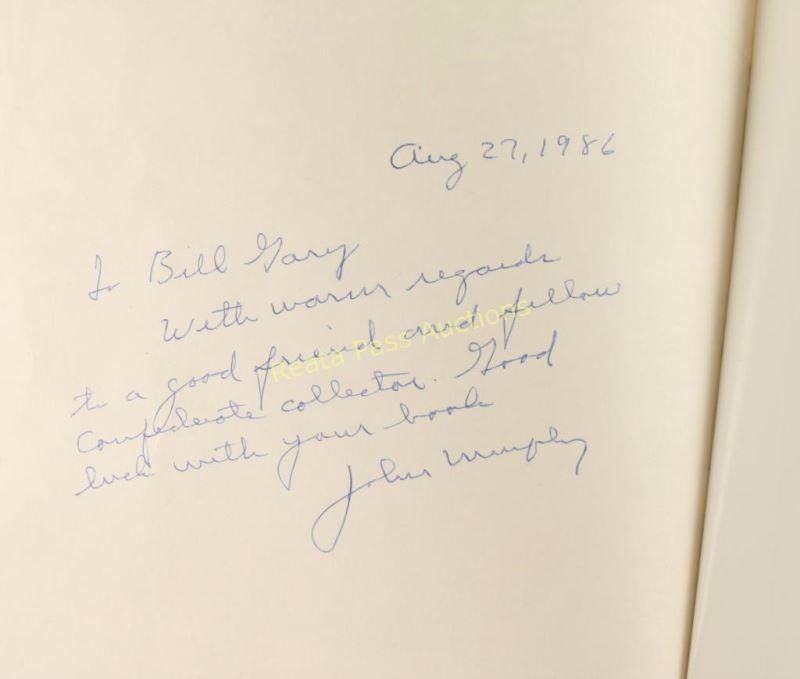 Aug 27, 1986
To Bill Gary
With warm regards
to a good friend and fellow
Reata Pass Auctions
Confederate collector. Good
luck with your book
John Murphy